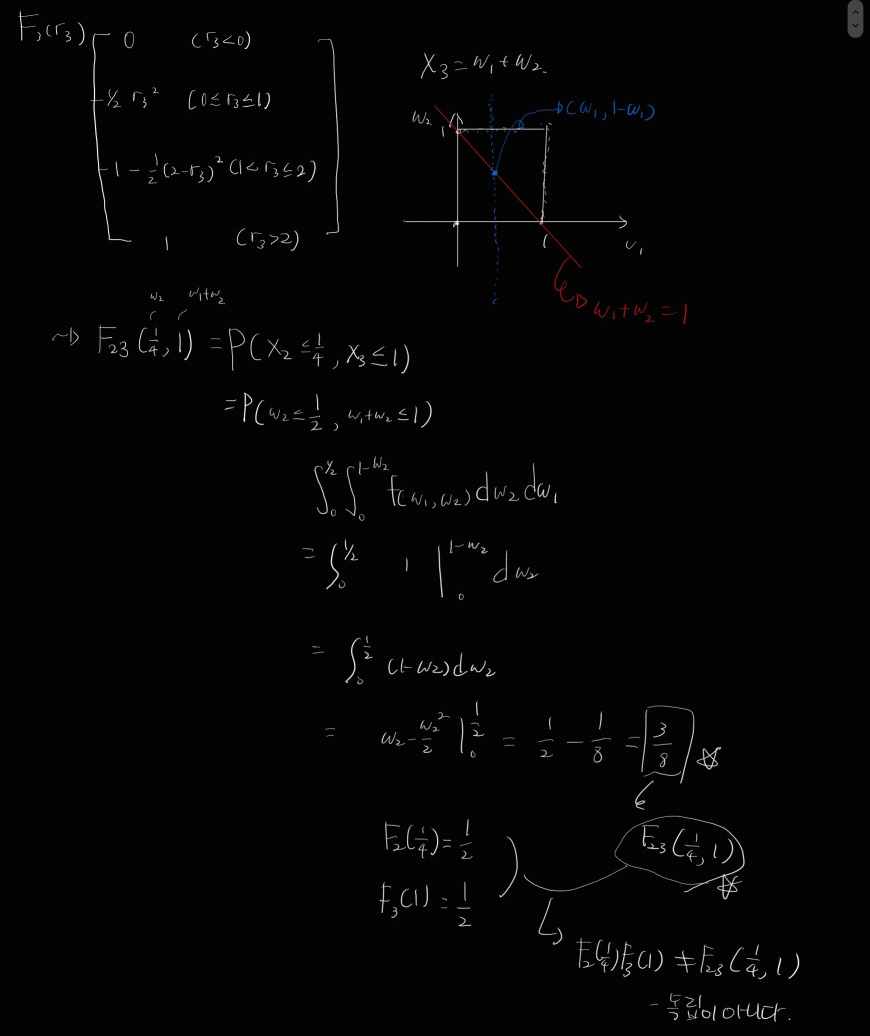 F₃(r₃)
0 (r₃<0)
½ r₃² (0≤r₃≤1)
1 - 1/2(2-r₃)² (1<r₃≤2)
1 (r₃>2)
X₃=w₁+w₂.
w₂
1
(w₁, 1-w₁)
1
w₁+w₂=1
w₂ w₁+w₂
F₂₃(1/4, 1) = P(X₂≤1/4, X₃≤1)
=P(w₂≤1/2, w₁+w₂≤1)
∫₀^{1/2} ∫₀^{1-w₂} f(w₁, w₂) dw₂ dw₁
= ∫₀^{1/2} 1 |₀^{1-w₂} dw₂
= ∫₀^{1/2} (1-w₂)dw₂
= w₂ - w₂²/2 |₀^{1/2} = 1/2 - 1/8 = 3/8
F₂(1/4) = 1/2
F₂₃(1/4, 1)
F₃(1) = 1/2
F₂(1/4)F₃(1) ≠ F₂₃(1/4, 1)
- 독립이 아니다.